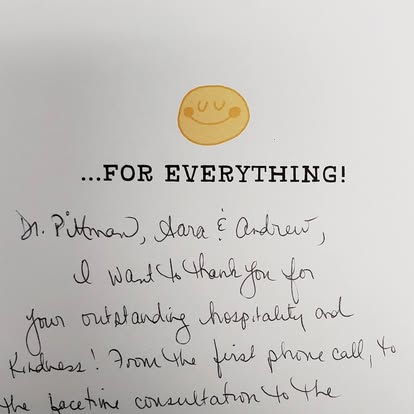 ...FOR EVERYTHING!
Dr. Pittman, Sara & Andrew,
I want to thank you for
your outstanding hospitality and
Kindness! From the first phone call, to
the facetime consultation to the